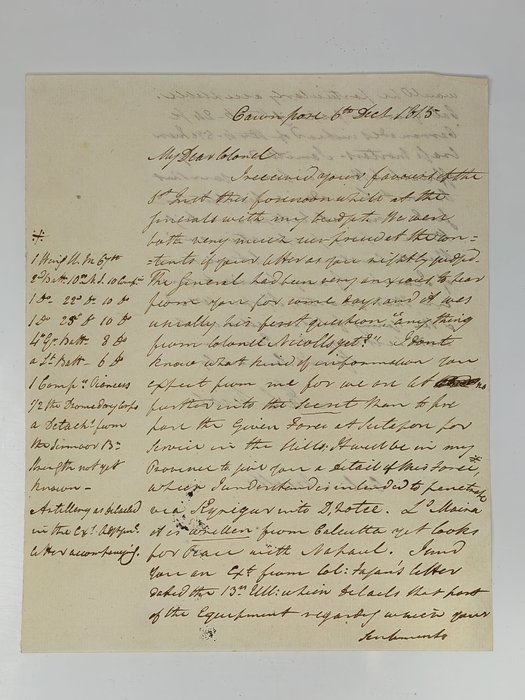 Cawnpore 6th Decr 1815
My Dear Colonel
I received your favour of the
1st Inst this forenoon whilst at the
Generals with my budget. We were
both very much surprised at the con=
=tents of your letter as you rightly judged.
The General had been very anxious to hear
from you for some days and it was
usually his first question "anything
from Colonel Nicolls yet?" I dont
know what kind of information you
expect from me for we are let no
further into the secret than to pre
pare the Given Force at Seetapore for
Service in the Hills; It will be in my
Province to give you a detail of this Force,*
which I understand is intended to penetrate
via into D,Lotee. Ld Moira
it is written from Calcutta yet looks
for Peace with Napaul. I send
you an Ext from Col: Fagan's letter
dated the 13th Ult: which details that part
of the Equipment regarding which your
Sentiments
*.
1 Wing H. M. 67th
2d Batt. 10th N.I. 10 Comps
1 Do 22d Do 10 Do
1 Do 25th Do 10 Do
4th Gr Batt 8 Do
a Lt Batt 6 Do
1 Compy Pioneers
1/2 the Dromedary Corps
a Detacht from
the Sirmoor Bn
strength not yet
known—
Artillery as detailed
in the Ext. Adjt Genl.
letter accompanying.